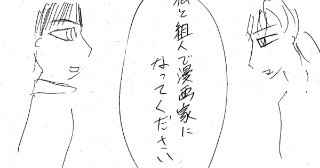 私と組んで漫画家に
なってください